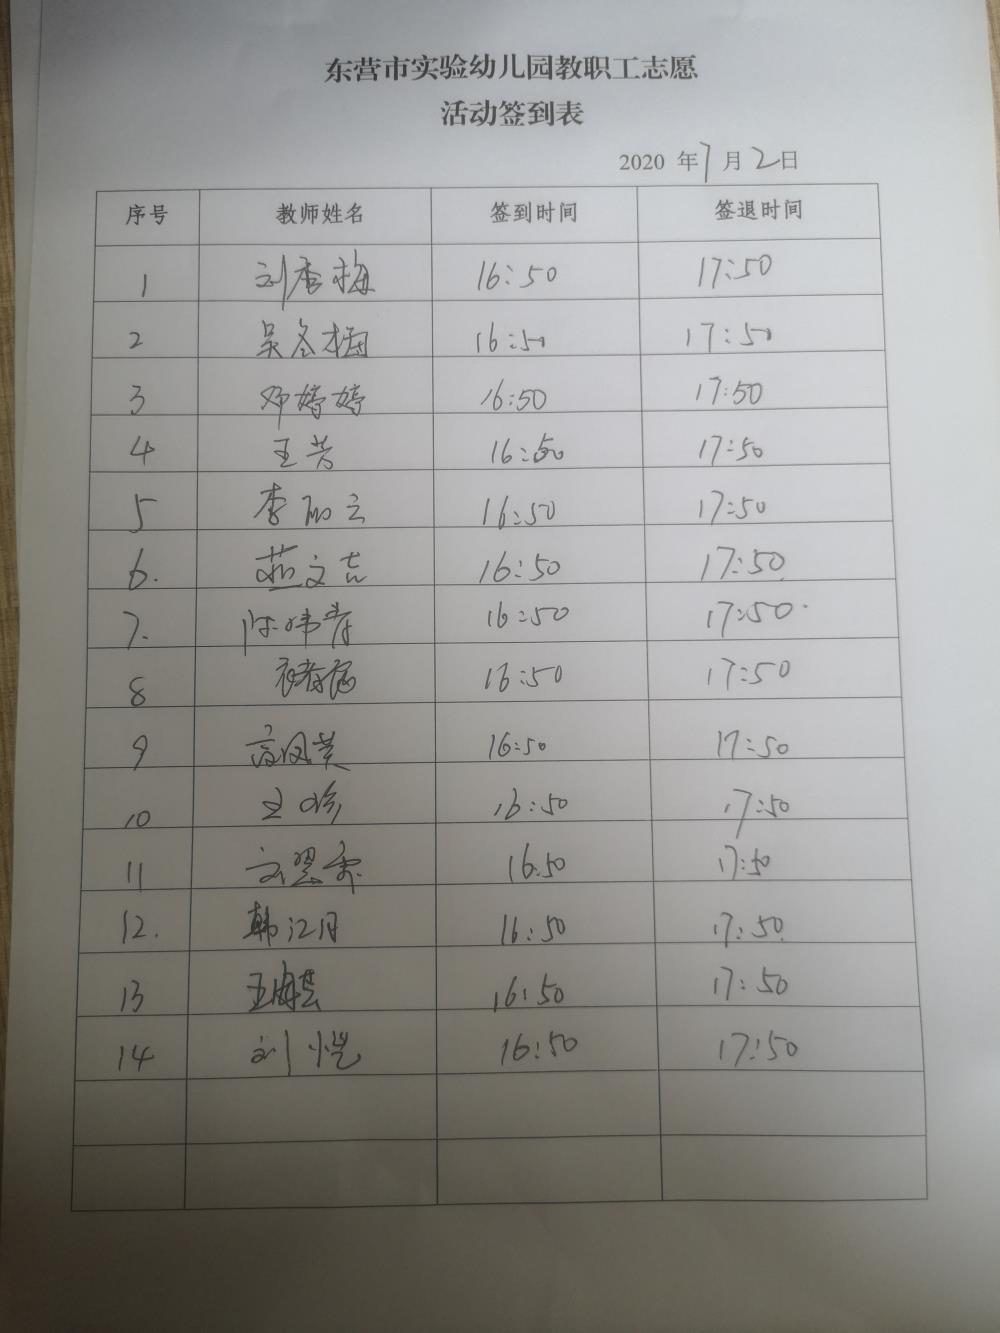 东营市实验幼儿园教职工志愿
活动签到表
2020 年 7 月 2 日
序号 教师姓名 签到时间 签退时间
1 刘秀梅 16:50 17:50
2 吴冬梅 16:50 17:50
3 邓婷婷 16:50 17:50
4 王芳 16:50 17:50
5 李丽云 16:50 17:50
6. 燕文吉 16:50 17:50
7. 16:50 17:50
8 16:50 17:50
9 高凤英 16:50 17:50
10 王 16:50 17:50
11 16:50 17:50
12. 韩江月 16:50 17:50
13 王海芸 16:50 17:50
14 刘恺 16:50 17:50